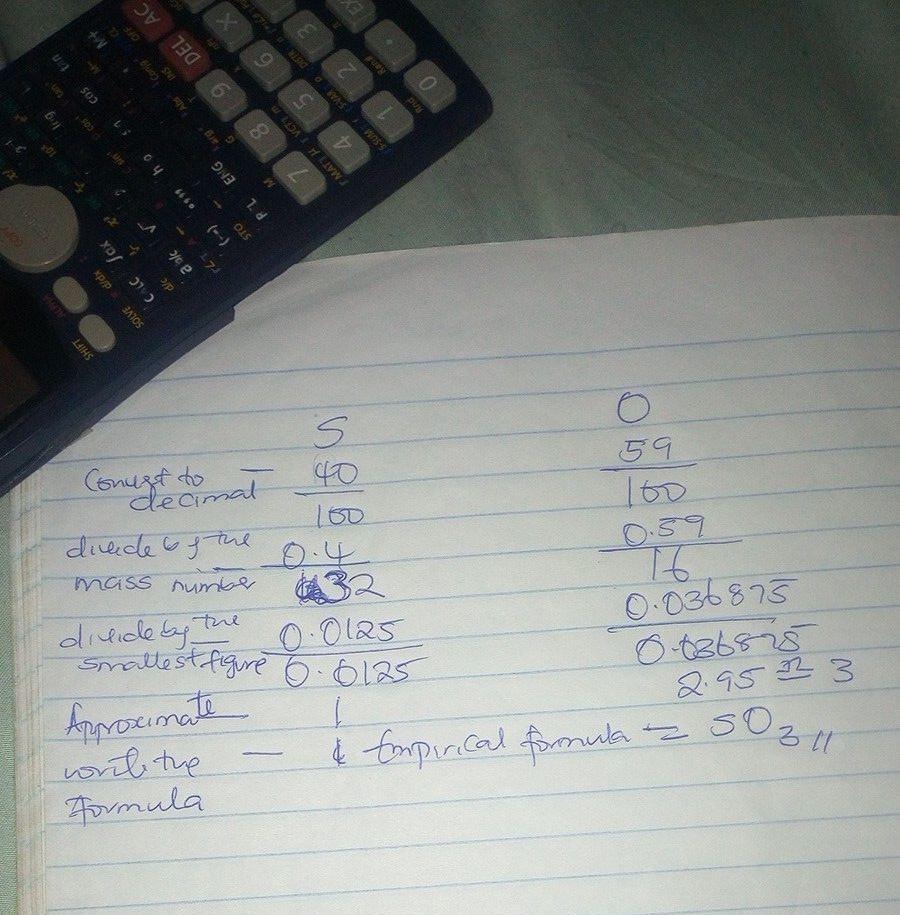 AC
DEL
0
1
2
3
4
5
6
7
8
9
SHIFT
ALPHA
SOLVE
CALC
ENG
STO
S O
Convert to — 40 59
decimal 100 100
divide by the 0.4 0.59
mass number 32 16
divide by the 0.0125 0.036875
smallest figure 0.0125 0.036875
2.95 ≃ 3
Approximate 1
write the — & Empirical formula = SO3//
formula